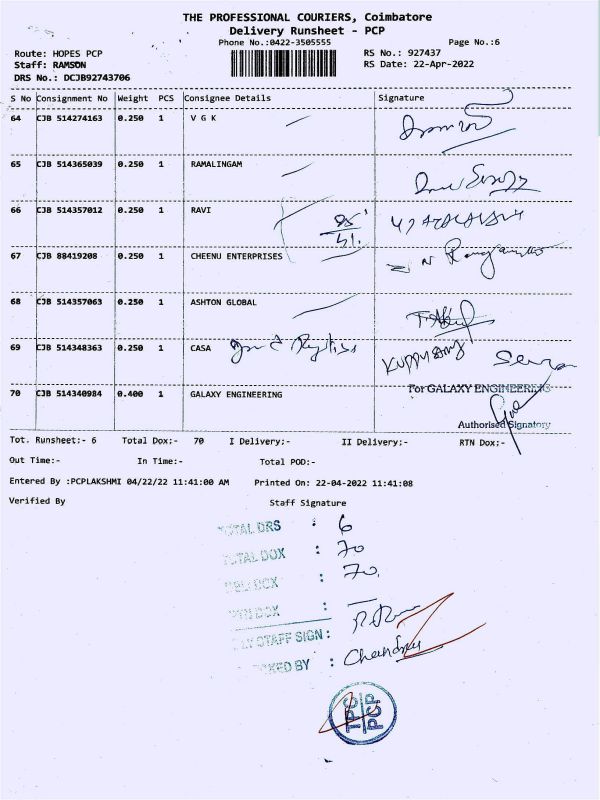 THE PROFESSIONAL COURIERS, Coimbatore
Delivery Runsheet - PCP
Phone No.:0422-3505555 Page No.:6
Route: HOPES PCP RS No.: 927437
Staff: RAMSON RS Date: 22-Apr-2022
DRS No.: DCJB92743706
S No Consignment No Weight PCS Consignee Details Signature
64 CJB 514274163 0.250 1 V G K
65 CJB 514365039 0.250 1 RAMALINGAM
66 CJB 514357012 0.250 1 RAVI
67 CJB 88419208 0.250 1 CHEENU ENTERPRISES
68 CJB 514357063 0.250 1 ASHTON GLOBAL
69 CJB 514348363 0.250 1 CASA KUPPUSAMY
For GALAXY ENGINEERING
70 CJB 514340984 0.400 1 GALAXY ENGINEERING
Authorised Signatory
Tot. Runsheet:- 6 Total Dox:- 70 I Delivery:- II Delivery:- RTN Dox:-
Out Time:- In Time:- Total POD:-
Entered By :PCPLAKSHMI 04/22/22 11:41:00 AM Printed On: 22-04-2022 11:41:08
Verified By Staff Signature
TOTAL DRS : 6
TOTAL DOX : 70
DELI DOX : 70
RTN DOX : —
STAFF SIGN :
BY :
TPC
PCP